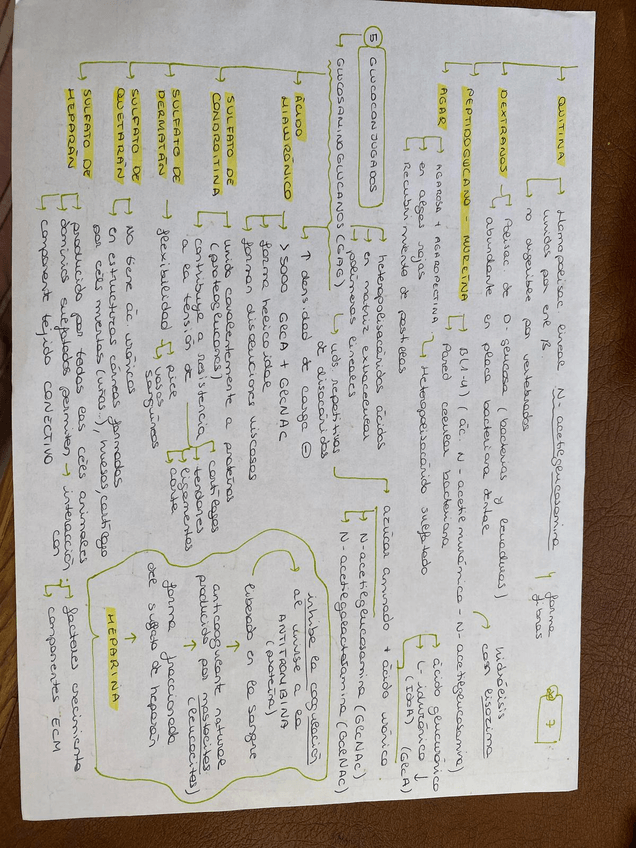 7
QUITINA
Homopolisac lineal N-acetilglucosamina
unidos por enl β
no digerible por vertebrados
forma
fibras
DEXTRANOS
Polisac de D-glucosa (bacterias y levaduras)
abundante en placa bacteriana dental
PEPTIDOGLUCANO - MUREÍNA
β(1-4) (ác. N-acetilmurámico - N-acetilglucosamina)
Pared celular bacteriana
hidrólisis
con lisozima
AGAR
AGAROSA + AGAROPECTINA → Heteropolisacárido sulfatado
en algas rojas
Recubrimiento de pastillas
5 GLUCOCONJUGADOS
GLUCOSAMINOGLUCANOS (GAG)
heteropolisacáridos ácidos
en matriz extracelular
polímeros lineales
uds repetitivas
de disacáridos
azúcar aminado + ácido urónico
N-acetilglucosamina (GlcNAC)
N-acetilgalactosamina (GalNAC)
ácido glucurónico
(GlcA)
L-idurónico
(IdoA)
↑ densidad de carga ⊖
ÁCIDO
HIALURÓNICO
> 5000 GlcA + GlcNAC
forma helicoidal
forman disoluciones viscosas
SULFATO DE
CONDROITINA
unido covalentemente a proteínas
(proteoglucanos)
contribuye a resistencia
a la tensión de
cartílagos
tendones
ligamentos
aorta
SULFATO DE
DERMATÁN
→ flexibilidad
piel
vasos
sanguíneos
SULFATO DE
QUETARÁN
No tiene ác. urónicos
en estructuras córneas formadas
por céls muertas (uñas..), huesos, cartílago
SULFATO DE
HEPARÁN
producido por todas las céls animales
dominios sulfatados permiten → interacción con
componente tejido CONECTIVO
factores crecimiento
componentes ECM
inhibe la coagulación
al unirse a la
ANTITROMBINA
(proteína)
liberado en la sangre
↑
anticoagulante natural
producido por mastocitos
(leucocitos)
↑
forma fraccionada
del sulfato de heparán
↑
HEPARINA